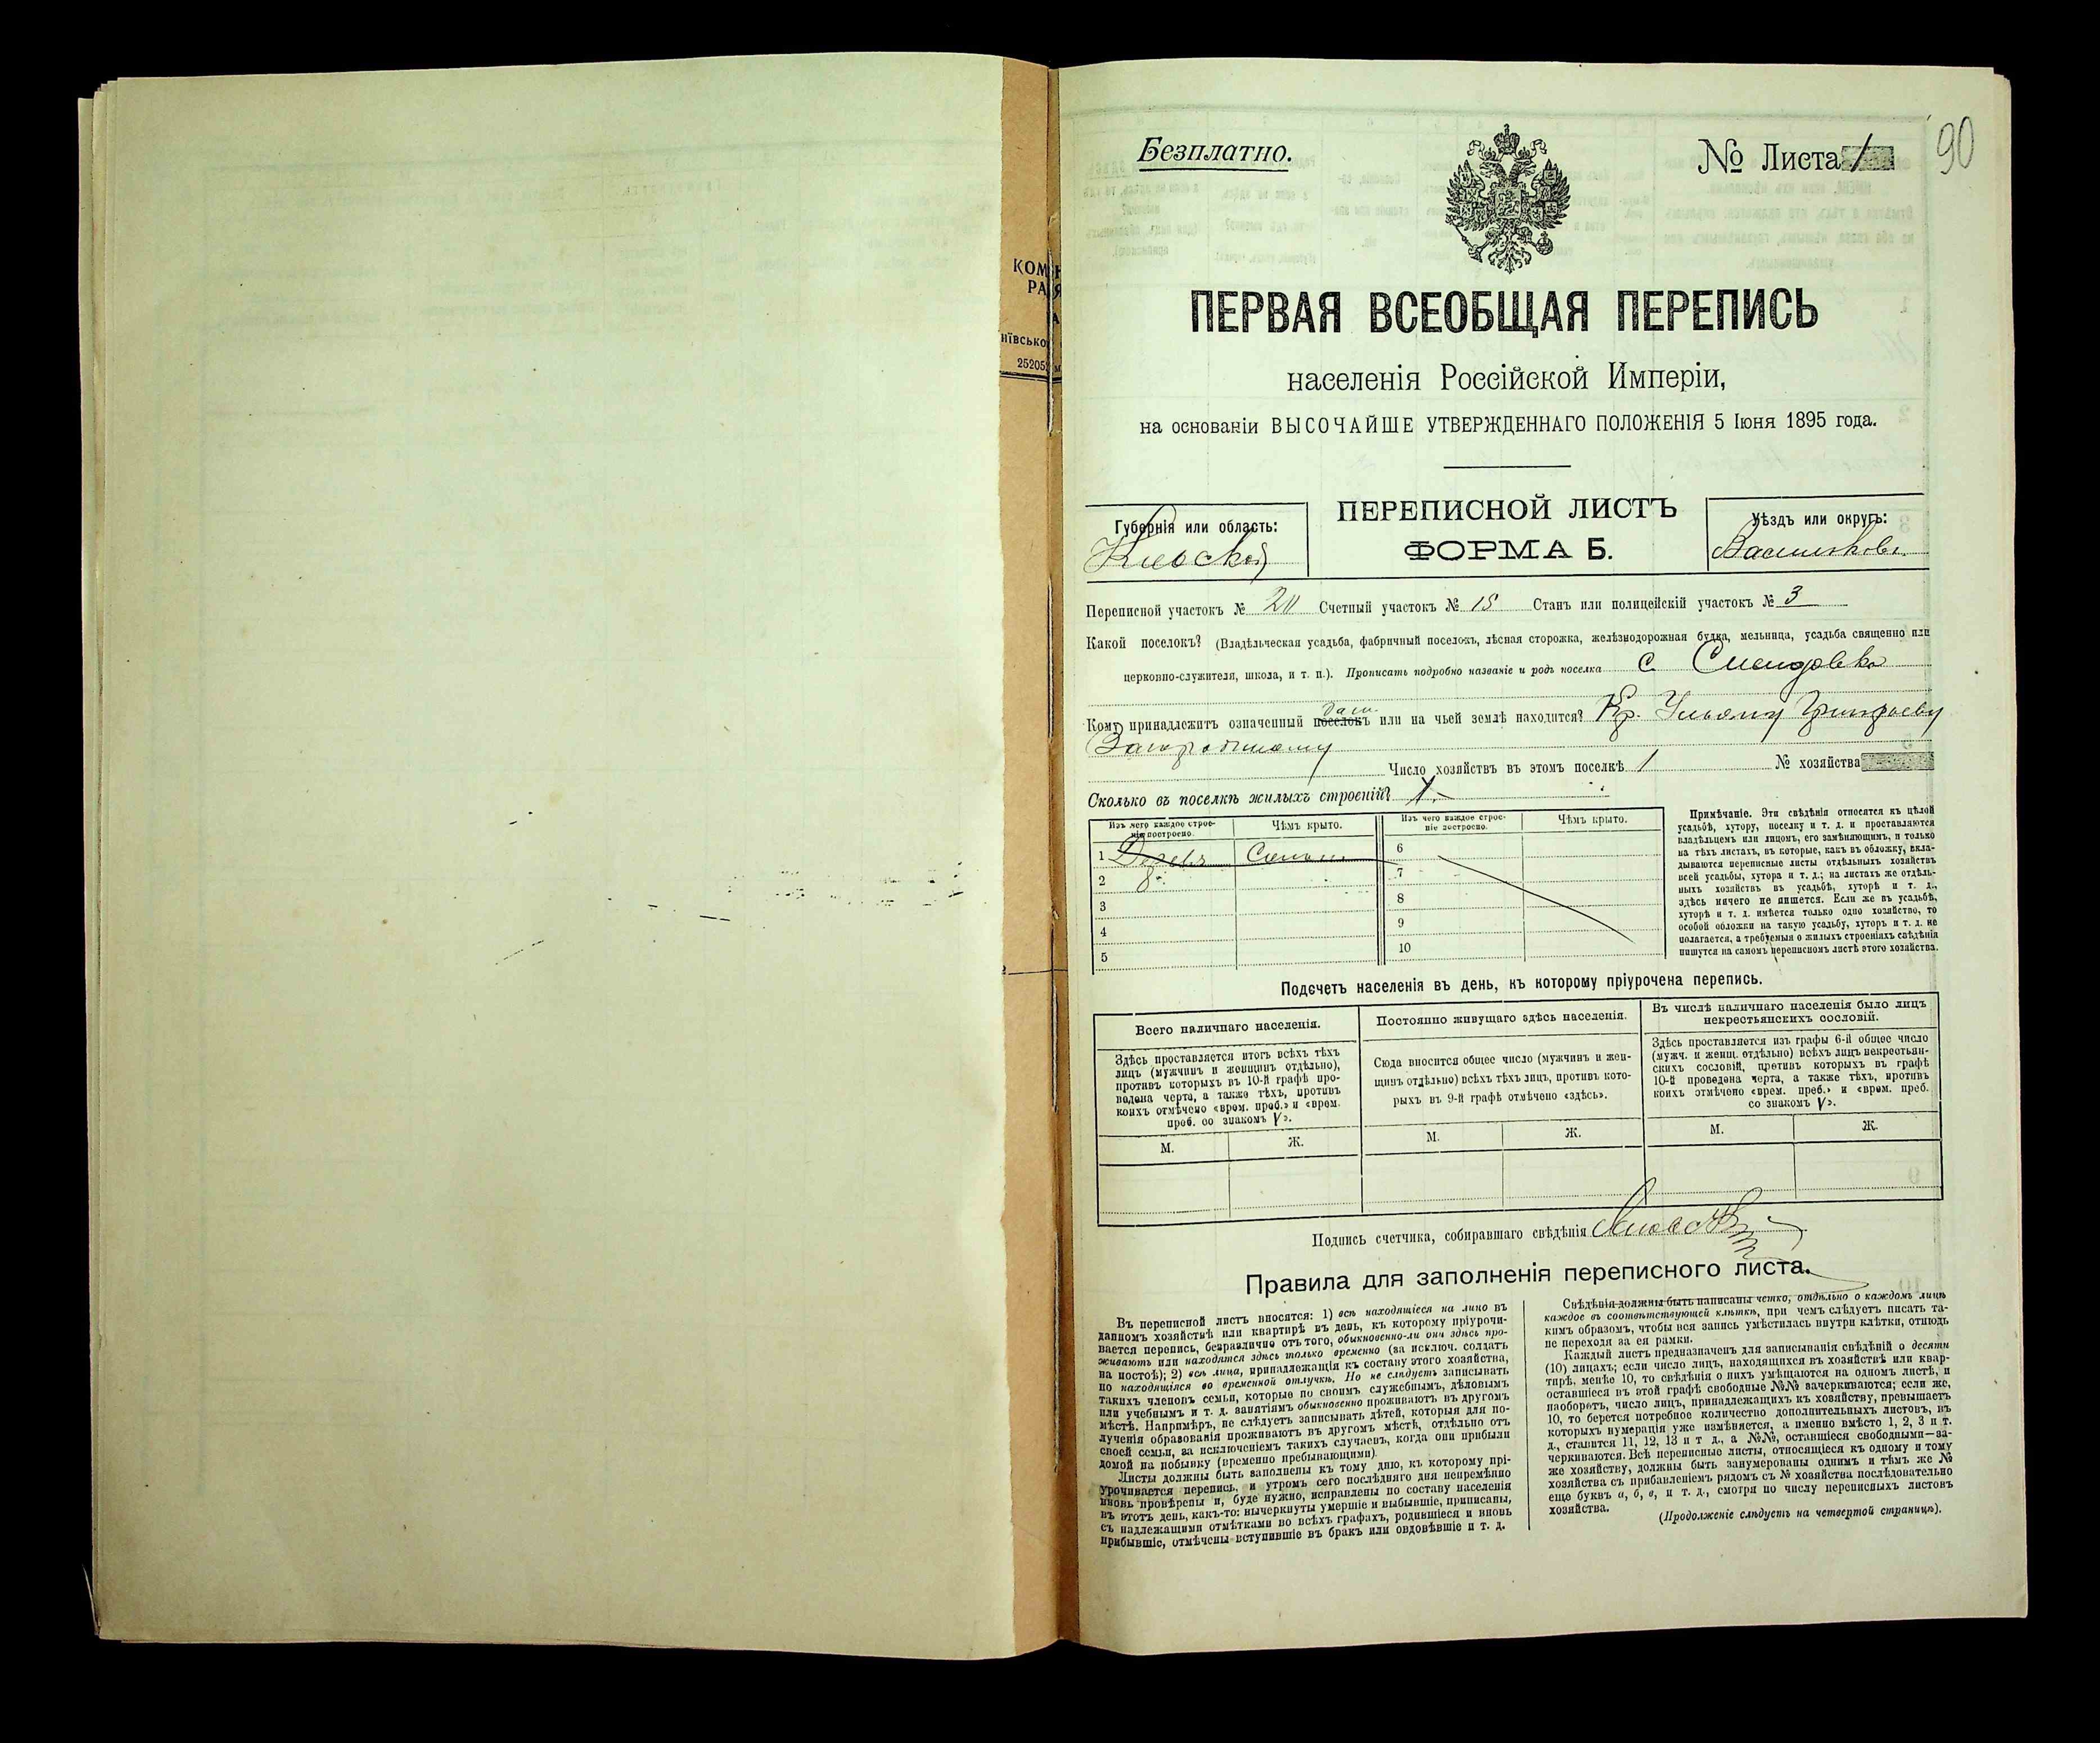 Безплатно.
№ Листа 1
90
ПЕРВАЯ ВСЕОБЩАЯ ПЕРЕПИСЬ
населенія Россійской Имперіи,
на основаніи ВЫСОЧАЙШЕ УТВЕРЖДЕННАГО ПОЛОЖЕНІЯ 5 Іюня 1895 года.
ПЕРЕПИСНОЙ ЛИСТЪ
ФОРМА Б.
Губернія или область:
Кіевской
Уѣздъ или округъ:
Васильков.
Переписной участокъ № Счетный участокъ № 15 Станъ или полицейскій участокъ № 3
Какой поселокъ? (Владѣльческая усадьба, фабричный поселокъ, лѣсная сторожка, желѣзнодорожная будка, мельница, усадьба священно или
церковно-служителя, школа, и т. п.). Прописать подробно названіе и родъ поселка с.
Кому принадлежитъ означенный поселокъ или на чьей землѣ находится? Кр.
Число хозяйствъ въ этомъ поселкѣ 1 № хозяйства
Сколько въ поселкѣ жилыхъ строеній? 1.
Изъ чего каждое строе-
ніе построено.
Чѣмъ крыто.
Изъ чего каждое строе-
ніе построено.
Чѣмъ крыто.
1 Дерев
2
3
4
5
6
7
8
9
10
Примѣчаніе. Эти свѣдѣнія относятся къ цѣлой
усадьбѣ, хутору, поселку и т. д. и проставляются
владѣльцемъ или лицомъ, его замѣняющимъ, и только
на тѣхъ листахъ, въ которые, какъ въ обложку, вкла-
дываются переписные листы отдѣльныхъ хозяйствъ
всей усадьбы, хутора и т. д.; на листахъ же отдѣль-
ныхъ хозяйствъ въ усадьбѣ, хуторѣ и т. д.,
здѣсь ничего не пишется. Если же въ усадьбѣ,
хуторѣ и т. д. имѣется только одно хозяйство, то
особой обложки на такую усадьбу, хуторъ и т. д. не
полагается, а требуемыя о жилыхъ строеніяхъ свѣдѣнія
пишутся на самомъ переписномъ листѣ этого хозяйства.
Подсчетъ населенія въ день, къ которому пріурочена перепись.
Всего наличнаго населенія.
Здѣсь проставляется итогъ всѣхъ тѣхъ
лицъ (мужчинъ и женщинъ отдѣльно),
противъ которыхъ въ 10-й графѣ про-
ведена черта, а также тѣхъ, противъ
коихъ отмѣчено «врем. преб.» и «врем.
преб. со знакомъ V».
М. Ж.
Постоянно живущаго здѣсь населенія.
Сюда вносится общее число (мужчинъ и жен-
щинъ отдѣльно) всѣхъ тѣхъ лицъ, противъ кото-
рыхъ въ 9-й графѣ отмѣчено «здѣсь».
М. Ж.
Въ числѣ наличнаго населенія было лицъ
некрестьянскихъ сословій.
Здѣсь проставляется изъ графы 6-й общее число
(мужч. и женщ. отдѣльно) всѣхъ лицъ некрестьян-
скихъ сословій, противъ которыхъ въ графѣ
10-й проведена черта, а также тѣхъ, противъ
коихъ отмѣчено «врем. преб.» и «врем. преб.
со знакомъ V».
М. Ж.
Подпись счетчика, собиравшаго свѣдѣнія
Правила для заполненія переписного листа.
Въ переписной листъ вносятся: 1) всѣ находящіеся на лицо въ
данномъ хозяйствѣ или квартирѣ въ день, къ которому пріурочи-
вается перепись, безразлично отъ того, обыкновенно-ли они здѣсь про-
живаютъ или находятся здѣсь только временно (за исключ. солдатъ
на постоѣ); 2) всѣ лица, принадлежащія къ составу этого хозяйства,
но находящіяся во временной отлучкѣ. Но не слѣдуетъ записывать
такихъ членовъ семьи, которые по своимъ служебнымъ, дѣловымъ
или учебнымъ и т. д. занятіямъ обыкновенно проживаютъ въ другомъ
мѣстѣ. Напримѣръ, не слѣдуетъ записывать дѣтей, которыя для по-
лученія образованія проживаютъ въ другомъ мѣстѣ, отдѣльно отъ
своей семьи, за исключеніемъ такихъ случаевъ, когда они прибыли
домой на побывку (временно пребывающими).
Листы должны быть заполнены къ тому дню, къ которому прі-
урочивается перепись, и утромъ сего послѣдняго дня непремѣнно
вновь провѣрены и, буде нужно, исправлены по составу населенія
въ этотъ день, какъ-то: вычеркнуты умершіе и выбывшіе, приписаны,
съ надлежащими отмѣтками во всѣхъ графахъ, родившіеся и вновь
прибывшіе, отмѣчены вступившіе въ бракъ или овдовѣвшіе и т. д.
Свѣдѣнія должны быть написаны четко, отдѣльно о каждомъ лицѣ
каждое въ соотвѣтствующей клѣткѣ, при чемъ слѣдуетъ писать та-
кимъ образомъ, чтобы вся запись умѣстилась внутри клѣтки, отнюдь
не переходя за ея рамки.
Каждый листъ предназначенъ для записыванія свѣдѣній о десяти
(10) лицахъ; если число лицъ, находящихся въ хозяйствѣ или квар-
тирѣ, менѣе 10, то свѣдѣнія о нихъ умѣщаются на одномъ листѣ, и
оставшіеся въ этой графѣ свободные №№ зачеркиваются; если же,
наоборотъ, число лицъ, принадлежащихъ къ хозяйству, превышаетъ
10, то берется потребное количество дополнительныхъ листовъ, въ
которыхъ нумерація уже измѣняется, а именно вмѣсто 1, 2, 3 и т.
д., ставится 11, 12, 13 и т д., а №№, оставшіеся свободными—за-
черкиваются. Всѣ переписные листы, относящіеся къ одному и тому
же хозяйству, должны быть занумерованы однимъ и тѣмъ же №
хозяйства съ прибавленіемъ рядомъ съ № хозяйства послѣдовательно
еще буквъ а, б, в, и т. д., смотря по числу переписныхъ листовъ
хозяйства.
(Продолженіе слѣдуетъ на четвертой страницѣ).